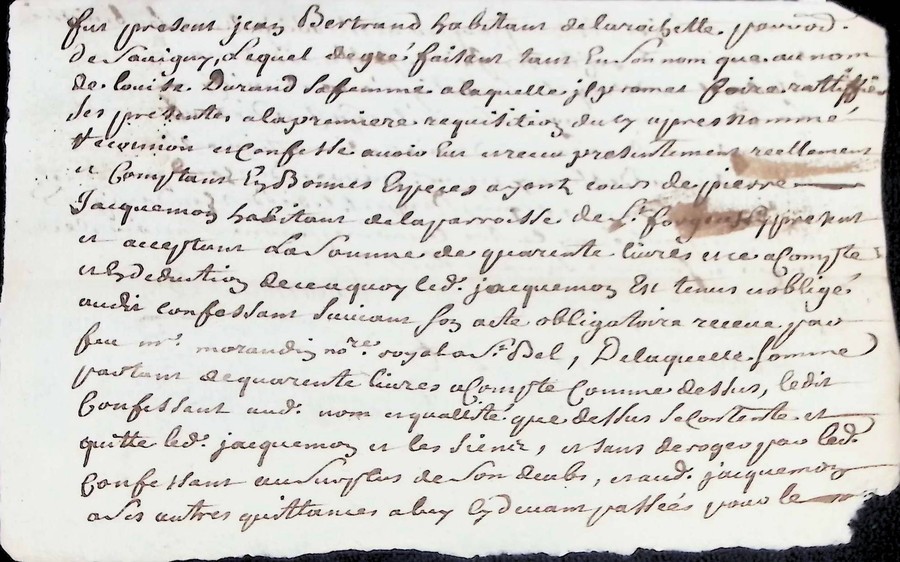 fut present jean Bertrand habitant de larochette parr. d.
de Savigny, Lequel de gré faisant tant En Son nom que au nom
de louise Durand Sa femme a laquelle jl promet faire rattiffier
Ses presentes a la premiere requisition du cy apres nommé
et Confesse avoir Eu et receu presentement reellement
et Comptant En Bonnes Especes ayant cours de pierre
Jacquemon habitant de la parroisse de St. forgeux cy present
et acceptant La Somme de quarente livres et ce a Compte
et En deduction de ce a quoy led. jacquemon Est tenu et obligé
audit confessant Suivant Son acte obligatoire receue par
feu me. morandin nore. royal a St. Bel, De laquelle Somme
partant de quarente livres a Compte Comme dessus, ledit
Confessant aud. nom et qualité que dessus Se Contente et
quitte led. jacquemon et les Siens, et Sans deroger par led.
Confessant au Surplus de Son deubs, et aud. jacquemon
a Ses autres quittances a luy cy devant passées pour le